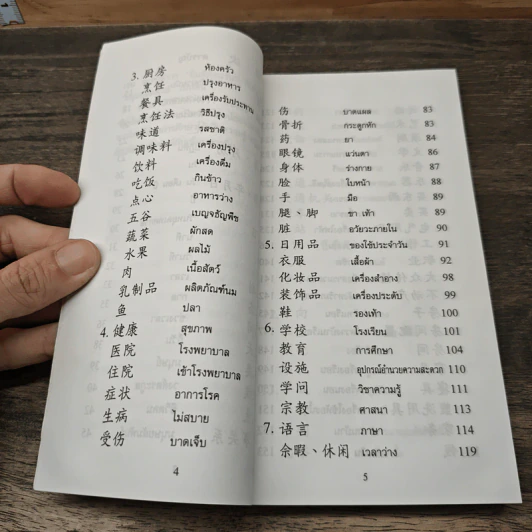 3. 厨房 ห้องครัว
烹饪 ปรุงอาหาร
餐具 เครื่องรับประทาน
烹饪法 วิธีปรุง
味道 รสชาติ
调味料 เครื่องปรุง
饮料 เครื่องดื่ม
吃饭 กินข้าว
点心 อาหารว่าง
五谷 เบญจธัญพืช
蔬菜 ผักสด
水果 ผลไม้
肉 เนื้อสัตว์
乳制品 ผลิตภัณฑ์นม
鱼 ปลา
4. 健康 สุขภาพ
医院 โรงพยาบาล
住院 เข้าโรงพยาบาล
症状 อาการโรค
生病 ไม่สบาย
受伤 บาดเจ็บ
4
伤 บาดแผล 83
骨折 กระดูกหัก 83
药 ยา 84
眼镜 แว่นตา 86
身体 ร่างกาย 87
脸 ใบหน้า 88
手 มือ 89
腿、脚 ขา เท้า 89
脏 อวัยวะภายใน 90
5. 日用品 ของใช้ประจำวัน 91
衣服 เสื้อผ้า 92
化妆品 เครื่องสำอาง 98
装饰品 เครื่องประดับ 99
鞋 รองเท้า 100
6. 学校 โรงเรียน 101
教育 การศึกษา 104
设施 อุปกรณ์อำนวยความสะดวก 110
学问 วิชาความรู้ 111
宗教 ศาสนา 113
7. 语言 ภาษา 114
余暇、休闲 เวลาว่าง 119
5